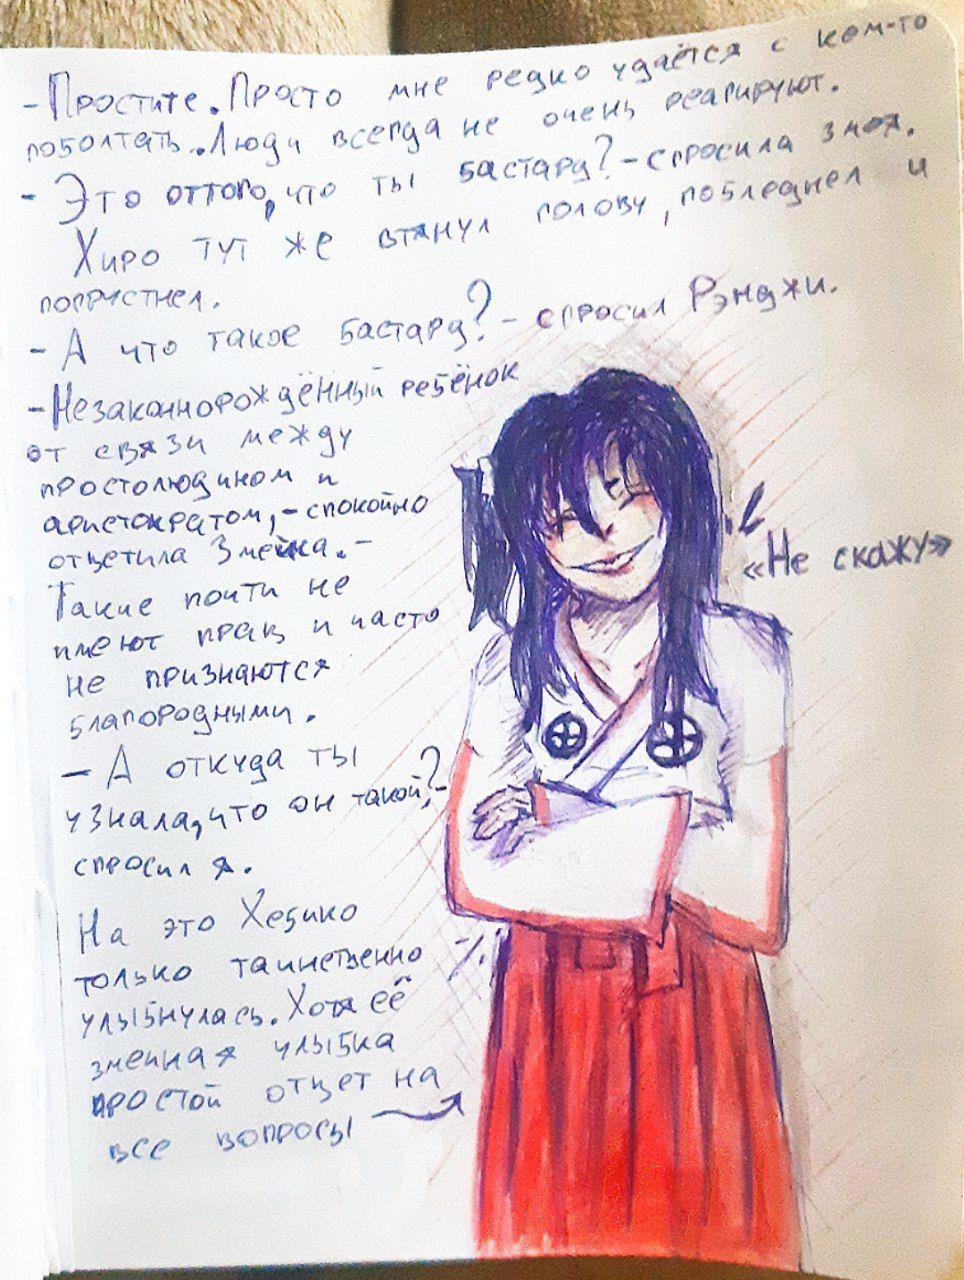 - Простите. Просто мне редко удаётся с кем-то
поболтать. Люди всегда не очень реагируют.
- Это оттого, что ты бастард? - спросила змея.
Хиро тут же втянул голову, побледнел и
погрустнел.
- А что такое бастард? - спросил Рэнджи.
- Незаконнорождённый ребёнок
от связи между
простолюдином и
аристократом, - спокойно
ответила Змейка. -
Такие почти не
имеют прав и часто
не признаются
благородными.
- А откуда ты
узнала, что он такой? -
спросил я.
На это Хебико
только таинственно
улыбнулась. Хотя её
змеиная улыбка
простой ответ на
все вопросы
«Не скажу»